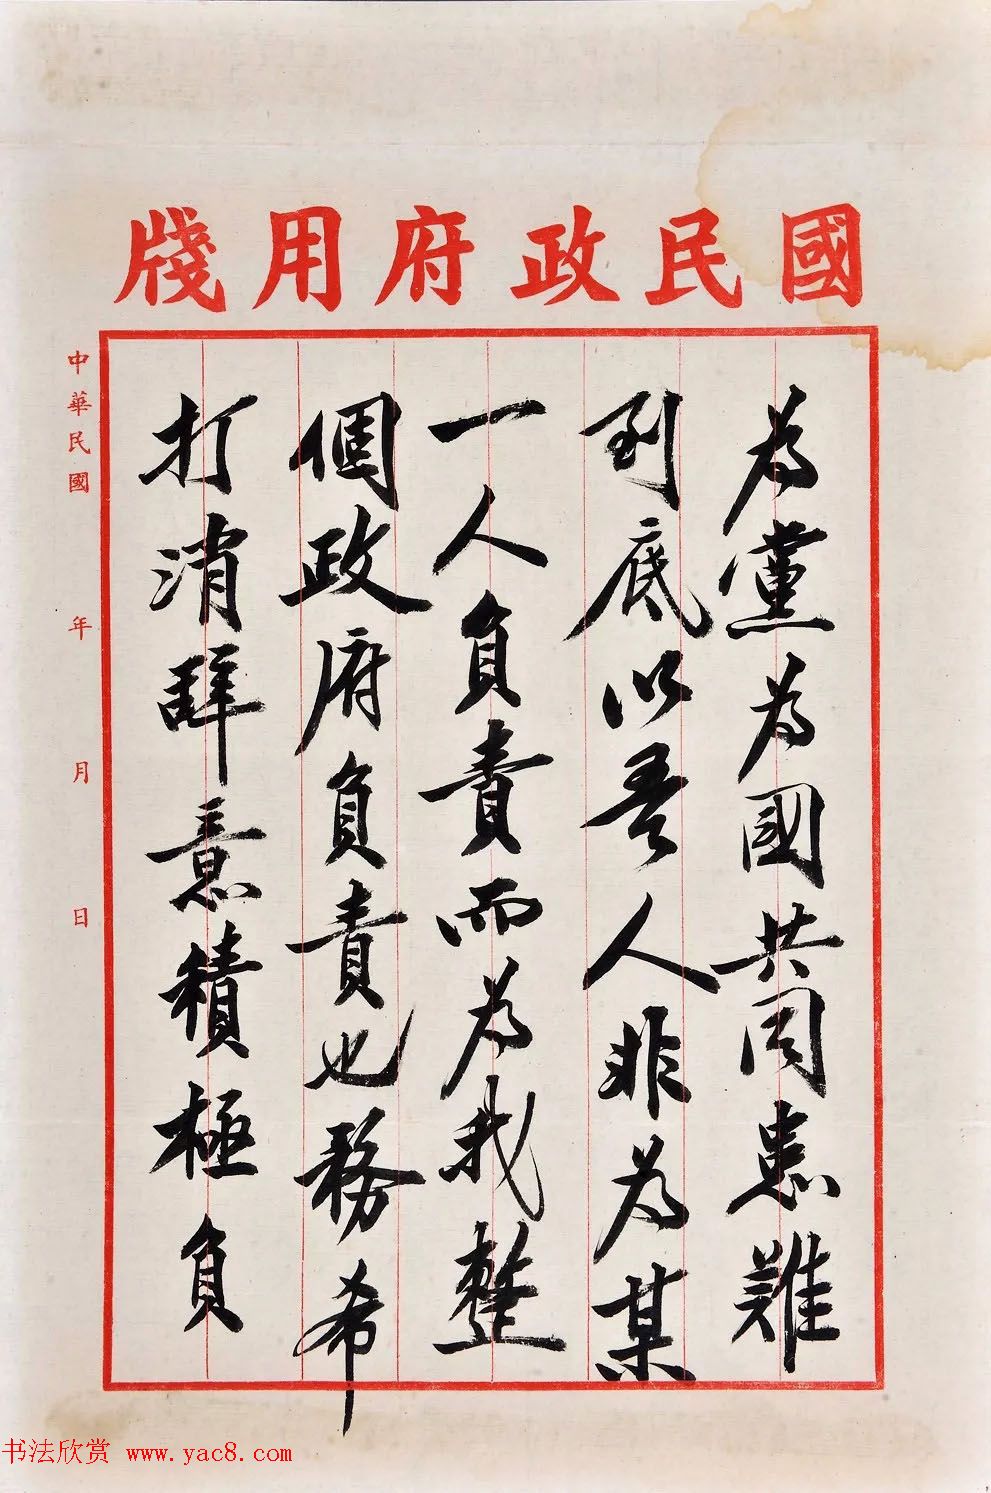 國民政府用牋
為黨為國共同患難
到底以吾人非為某
一人負責而為我整
個政府負責也務希
打消辭意積極負
中華民國 年 月 日
书法欣赏 www.yac8.com